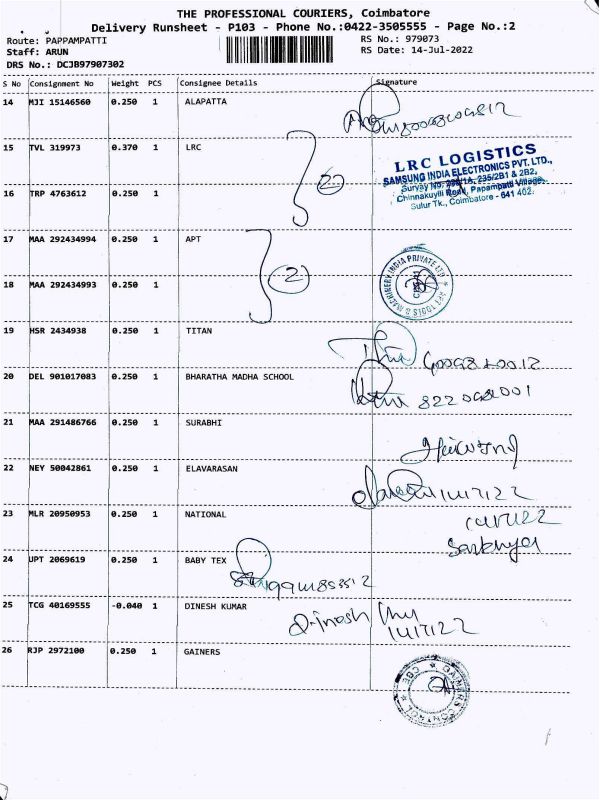 THE PROFESSIONAL COURIERS, Coimbatore
Delivery Runsheet - P103 - Phone No.:0422-3505555 - Page No.:2
Route: PAPPAMPATTI RS No.: 979073
Staff: ARUN RS Date: 14-Jul-2022
DRS No.: DCJB97907302
S No Consignment No Weight PCS Consignee Details Signature
14 MJI 15146560 0.250 1 ALAPATTA
15 TVL 319973 0.370 1 LRC
2
LRC LOGISTICS
SAMSUNG INDIA ELECTRONICS PVT. LTD.,
Survey No. 235/2B1 & 2B2,
Chinnakuyili Road, Pappampatti Village,
Sulur Tk., Coimbatore - 641 402.
16 TRP 4763612 0.250 1
17 MAA 292434994 0.250 1 APT
2
18 MAA 292434993 0.250 1
19 HSR 2434938 0.250 1 TITAN
20 DEL 901017083 0.250 1 BHARATHA MADHA SCHOOL
21 MAA 291486766 0.250 1 SURABHI
22 NEY 50042861 0.250 1 ELAVARASAN
14/7/22
23 MLR 20950953 0.250 1 NATIONAL
14/7/22
24 UPT 2069619 0.250 1 BABY TEX
25 TCG 40169555 -0.040 1 DINESH KUMAR
Dinesh
14/7/22
26 RJP 2972100 0.250 1 GAINERS